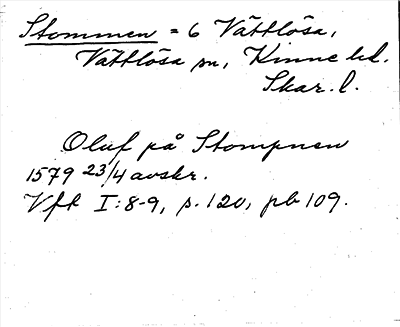 Stommen = 6 Vättlösa,
Vättlösa sn, Kinne hd.
Skar. l.
Oluf på Stompnen
1579 23/4 avskr.
Vft I:8-9, s. 120, pb 109.